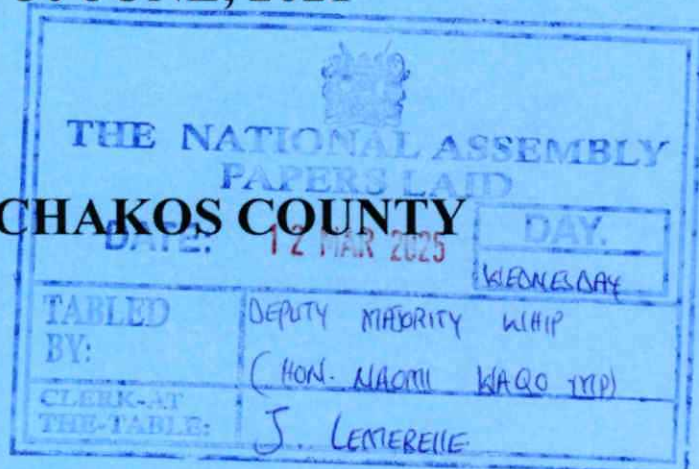 THE NATIONAL ASSEMBLY
PAPERS LAID
CHAKOS COUNTY
DATE: 12 MAR 2025 DAY.
WEDNESDAY
TABLED BY: DEPUTY MAJORITY WHIP
(HON. NAOMI WAQO MP)
CLERK-AT THE-TABLE: J. LEMERELLE